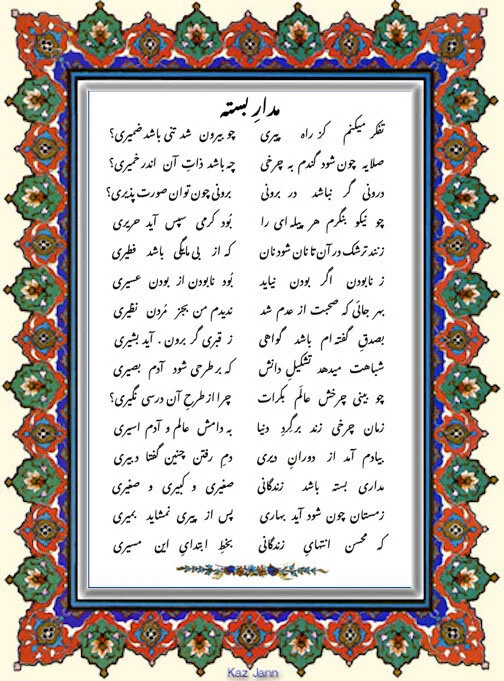 مدارِ بسته
تفکر میکنم کز راه پیری چو بیرون شد تنی باشد ضمیری؟
صلایه چون شود گندم به چرخی چه باشد ذاتِ آن اندر خمیری؟
درونی گر نباشد در برونی برونی چون توان صورت پذیری؟
چو نیکو بنگرم هر پیله ای را بُود کرمی سپس آید حریری
زنند ترشک در آن تا نان شود نان که از بی مایگی باشد فطیری
ز نابودن اگر بودن نیاید بُود نابودن از بودن عسیری
بهر جائی که صحبت از عدم شد ندیدم من بجز مُردن نظیری
بصدقِ گفته ام باشد گواهی ز قبری گر برون . آید بشیری
شباهت میدهد تشکیلِ دانش که بر طرحی شود آدم بصیری
چو بینی چرخش عالَم بکرات چرا از طرحِ آن درسی نگیری؟
زمان چرخی زند برگِردِ دنیا به دامش عالم و آدم اسیری
بیادم آمد از دورانِ دیری دمِ رفتن چنین گفتا دبیری
مداری بسته باشد زندگانی صغیری و کبیری و صغیری
زمستان چون شود آید بهاری پس از پیری نمشاید بمیری
که محسن انتهایِ زندگانی بخطِ ابتدایِ این مسیری
Kaz Jann